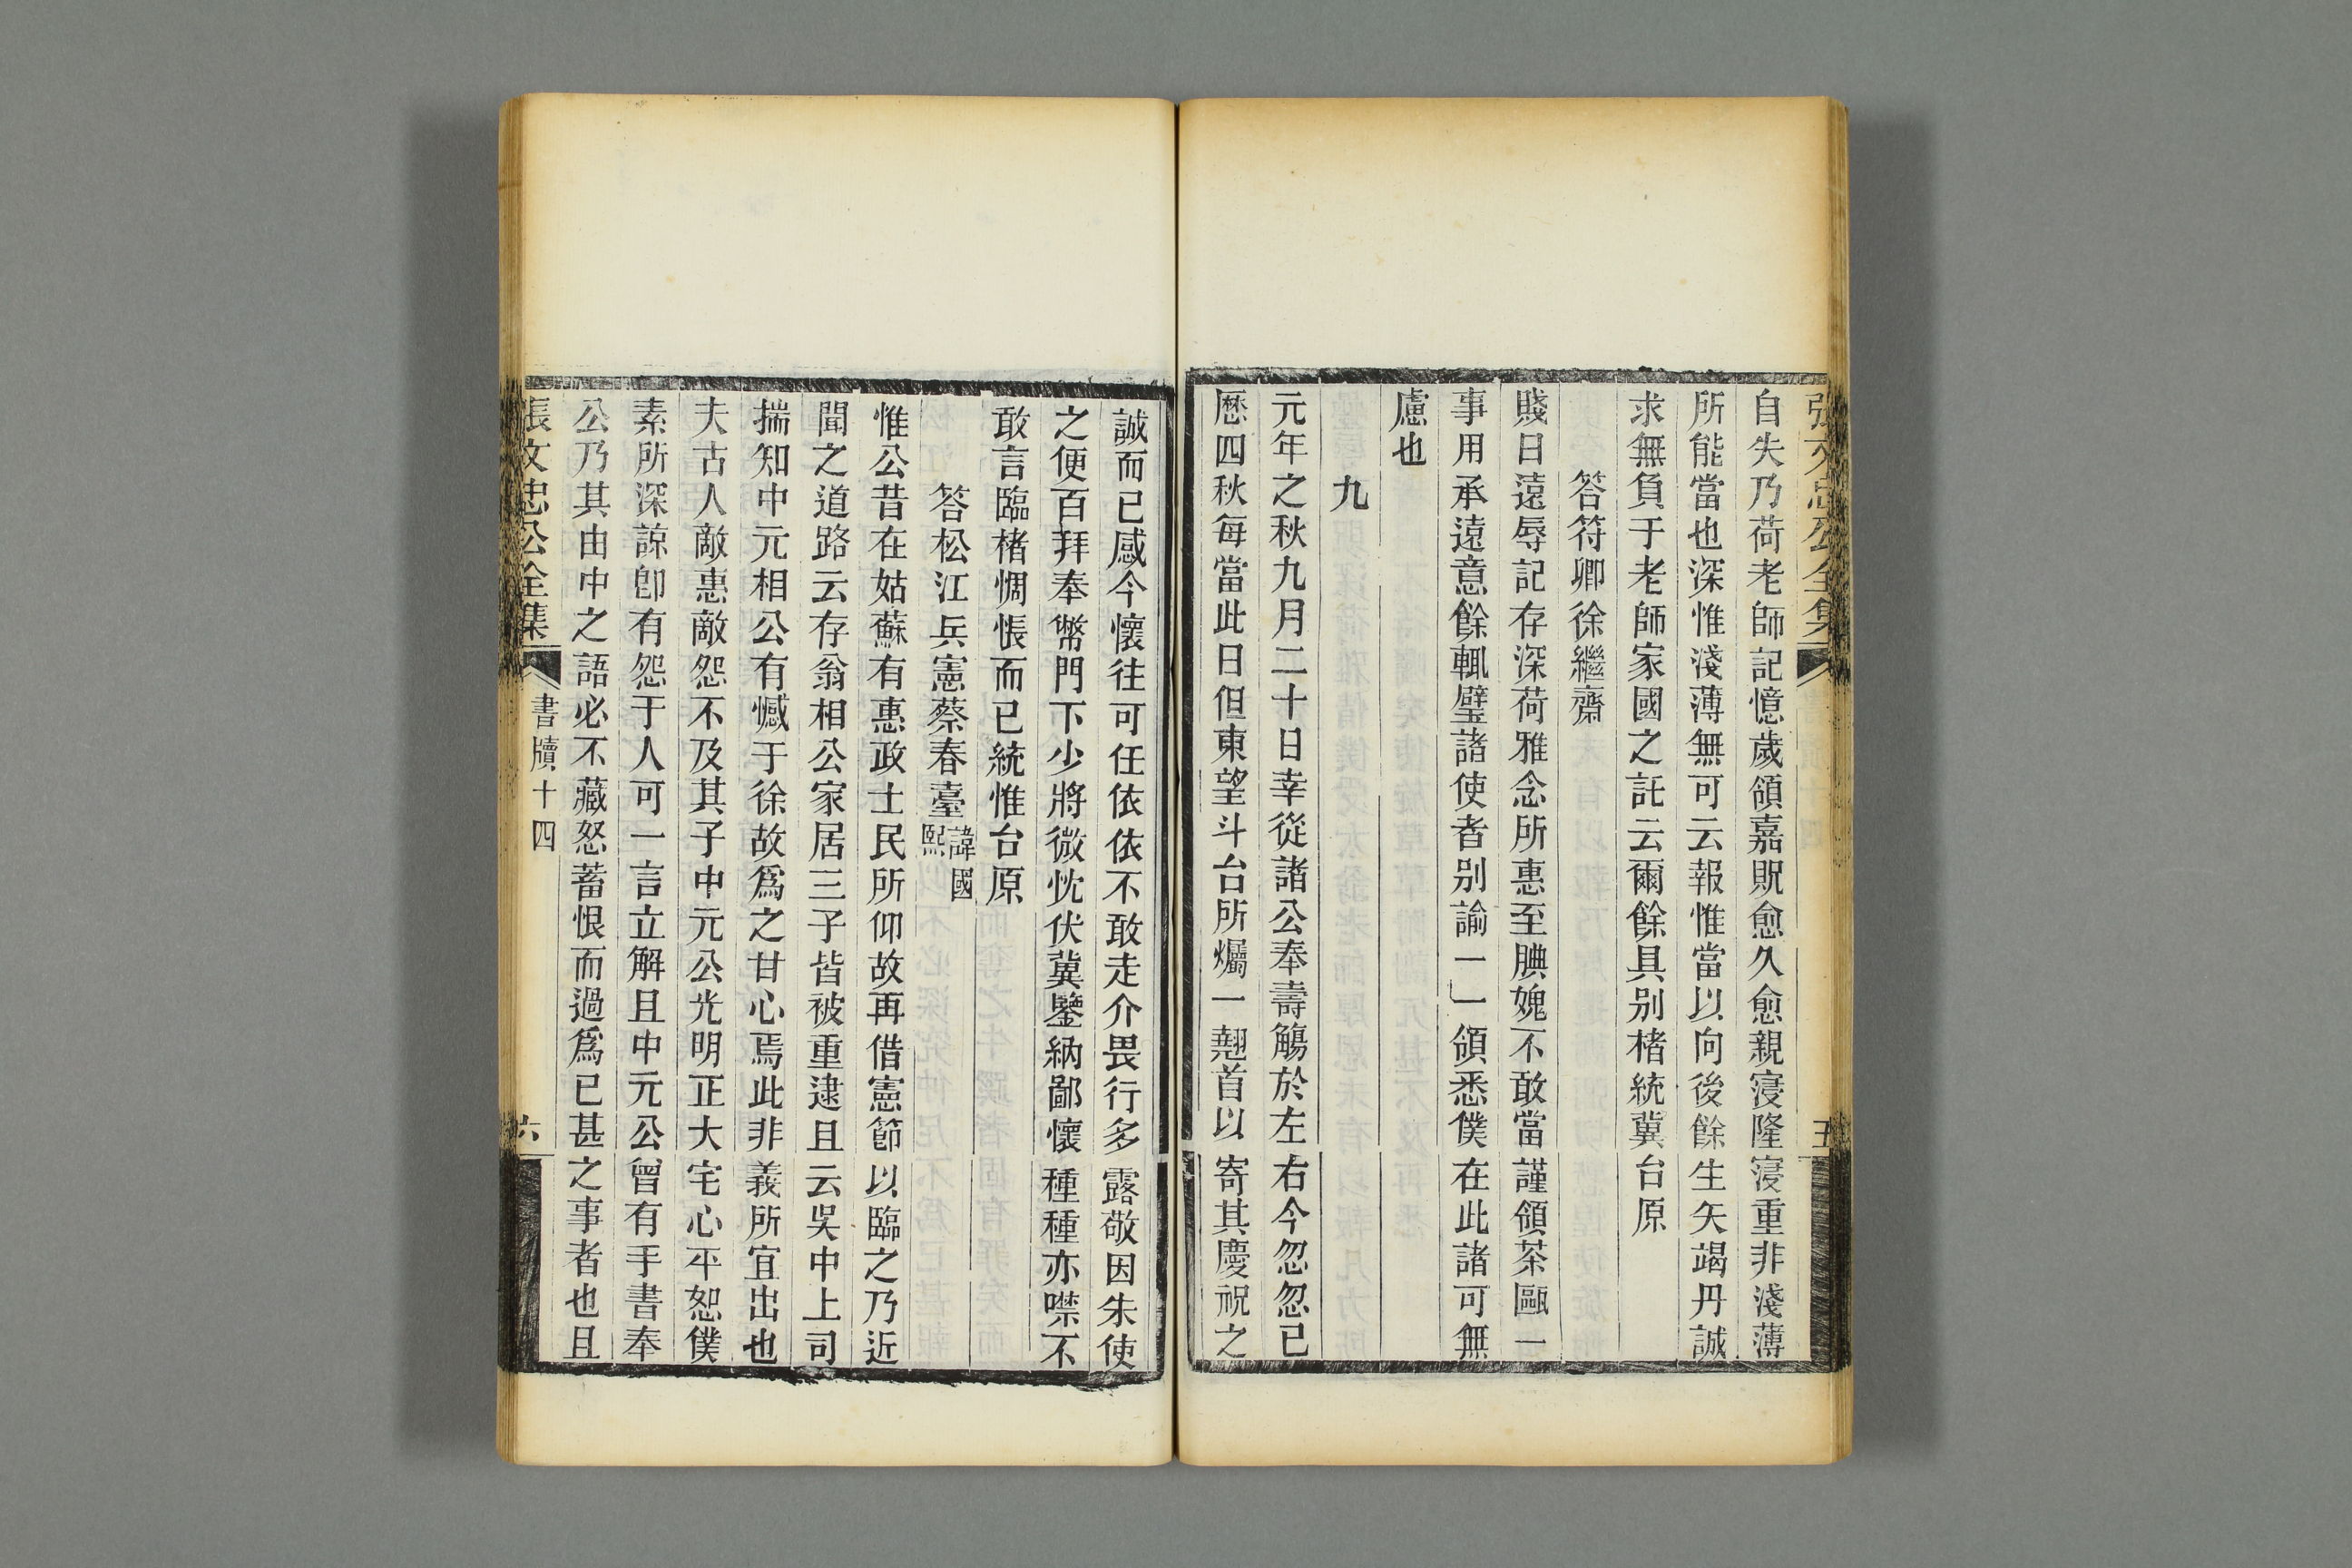 張文忠公全集
五
自失乃荷老師記憶歲頒嘉貺愈久愈親寖隆寖重非淺薄
所能當也深惟淺薄無可云報惟當以向後餘生矢竭丹誠
求無負于老師家國之託云爾餘具別楮統冀台原
答符卿徐繼齋
賤日遠辱記存深荷雅念所惠至腆媿不敢當謹領茶甌一
事用承遠意餘輒璧諸使者別諭一一領悉僕在此諸可無
慮也
九
元年之秋九月二十日幸從諸公奉壽觴於左右今忽忽已
歷四秋每當此日但東望斗台所爥一翹首以寄其慶祝之
誠而已感今懷往可任依依不敢走介畏行多露敬因朱使
之便百拜奉幣門下少將微忱伏冀鑒納鄙懷種種亦噤不
敢言臨楮惆悵而已統惟台原
答松江兵憲蔡春臺諱國熙
惟公昔在姑蘇有惠政士民所仰故再借憲節以臨之乃近
聞之道路云存翁相公家居三子皆被重逮且云吳中上司
揣知中元相公有憾于徐故爲之甘心焉此非義所宜出也
夫古人敵惠敵怨不及其子中元公光明正大宅心平恕僕
素所深諒卽有怨于人可一言立解且中元公曾有手書奉
公乃其由中之語必不藏怒蓄恨而過爲已甚之事者也且
張文忠公全集
書牘十四
六